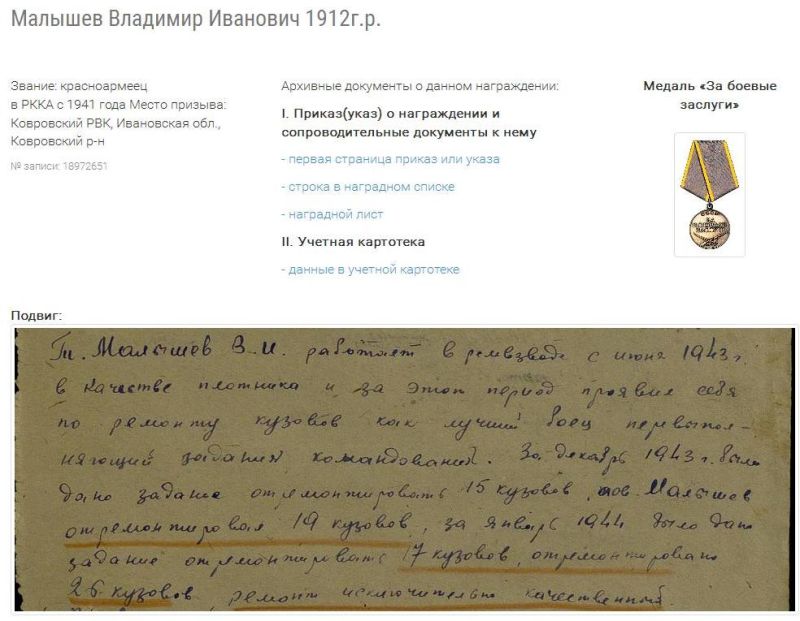 Малышев Владимир Иванович 1912г.р.
Звание: красноармеец
в РККА с 1941 года Место призыва:
Ковровский РВК, Ивановская обл.,
Ковровский р-н
№ записи: 18972651
Архивные документы о данном награждении:
I. Приказ(указ) о награждении и
сопроводительные документы к нему
- первая страница приказ или указа
- строка в наградном списке
- наградной лист
II. Учетная картотека
- данные в учетной картотеке
Медаль «За боевые
заслуги»
Подвиг:
Т. Малышев В.И. работает в ремвзводе с июня 1943 г.
в качестве плотника и за этот период проявил себя
по ремонту кузовов как лучший боец перевыпол-
няющий задания командования. За декабрь 1943 г. было
дано задание отремонтировать 15 кузовов, тов. Малышев
отремонтировал 19 кузовов, за январь 1944 было дано
задание отремонтировать 17 кузовов, отремонтировано
26 кузовов ремонт исключительно качественный.